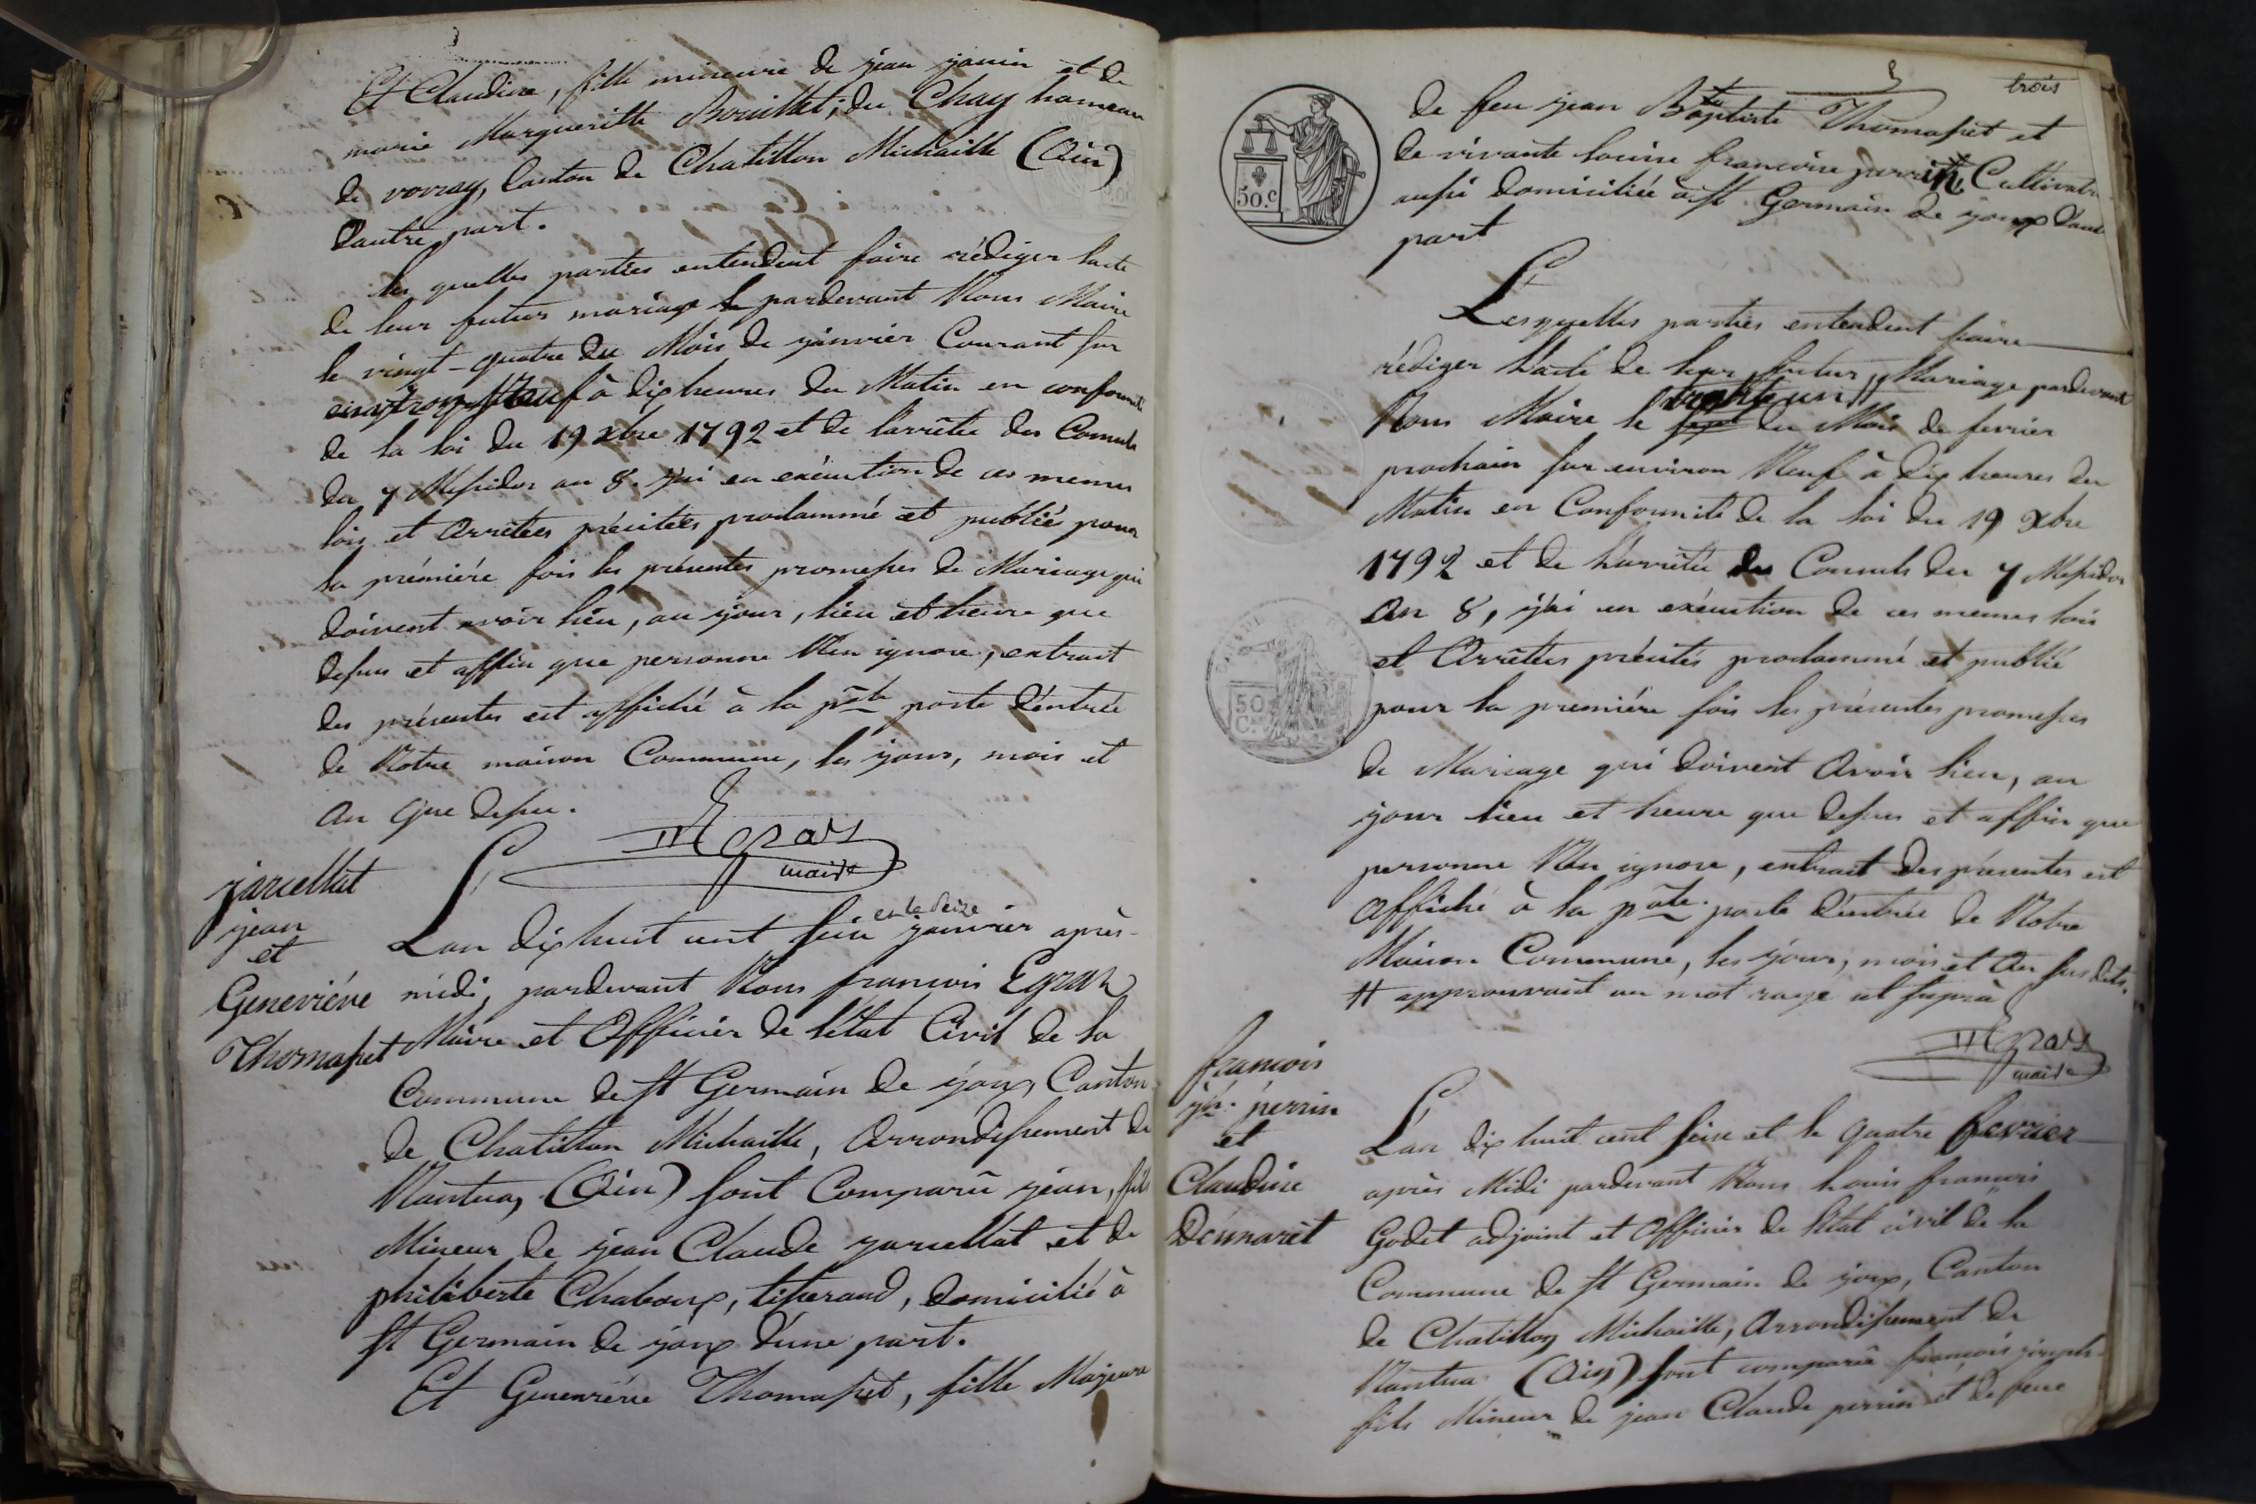 Et Claudine, fille mineure de jean janin et de
marie Margueritte Bouillet, du Chay hameau
de vovray, Canton de Chatillon Michaille (Ain)
d'autre part.
les quelles parties entendent faire rédiger l'acte
de leur futur mariage pardevant Nous Maire
le vingt-quatre du Mois de janvier Courant sur
neuf à dix heures du Matin en conformité
de la loi du 19 xbre 1792 et de l'arrêtée des Consuls
du 7 Messidor an 8. j'ai en exécution de ces memes
lois et Arrêtées précitées proclammé et publiés pour
la prémiére fois les présentes promesses de Mariage qui
doivent avoir lieu, au jour, lieu et heure que
dessus et affin que personne N'en ignore, extrait
des présentes est affiché à la pale porte d'éntrée
de Notre maison Commune, les jour, mois et
An que dessu.
Egraz
maire
jarcellat
jean
et
Geneviéve
Thomasset
L'an dix huit cent seize et le Seize janvier après-
midi, pardevant Nous francois Egraz
Maire et Officier de l'état Civil de la
Commune de St Germain de joux, Canton
de Chatillon Michaille, Arrondissement de
Nantua, (Ain) sont Comparû jean, fils
Mineur de jean Claude jarcellat et de
philiberte Chaboux, tisserand, domicilié à
St Germain de joux d'une part.
Et Geneviéve Thomasset, fille Majeure
trois
50.c
de feu jean Baptiste Thomasset et
de vivante louise francoise perrin, Cultivatr
aussi domiciliée à St Germain de joux d'aut
part
Lesquelles parties entendent faire
rédiger l'acte de leur futur Mariage pardevant
Nous Maire le du Mois de fevrier
prochain sur environ Neuf à dix heures du
Matin en Conformité de la loi du 19 xbre
1792 et de l'arrêtée des Consuls du 7 Messidor
An 8, j'ai en exécution de ces memes lois
et Arrêtées précités proclammé et publié
pour la premiére fois les présentes promesses
de Mariage qui doivent Avoir lieu, au
jour lieu et heure que dessus et affin que
personne N'en ignore, extrait des présentes est
affiché à la pale porte d'éntrée de Notre
Maison Commune, les jour, mois et An sus dits.
# approuvant un mot rayé ut suprà
Egraz
maire
50
C.
francois
jph perrin
et
Claudine
Démarèt
L'an dix huit cent seize et le quatre fevrier
après Midi pardevant Nous louis francois
Godet adjoint et Officier de l'état civil de la
Commune de St Germain de joux, Canton
de Chatillon Michaille, Arrondissement de
Nantua (Ain) sont comparû francois joseph
fils Mineur de jean Claude perrin et de feue